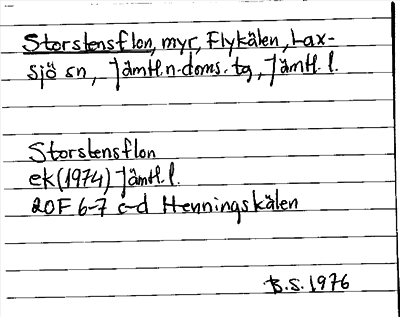 Storstensflon, myr, Flykälen, Lax-
sjö sn, Jämtl.n.doms.tg, Jämtl.l.
Storstensflon
ek (1974) Jämtl.l.
20F 6-7 c-d Henningskälen
B.S. 1976